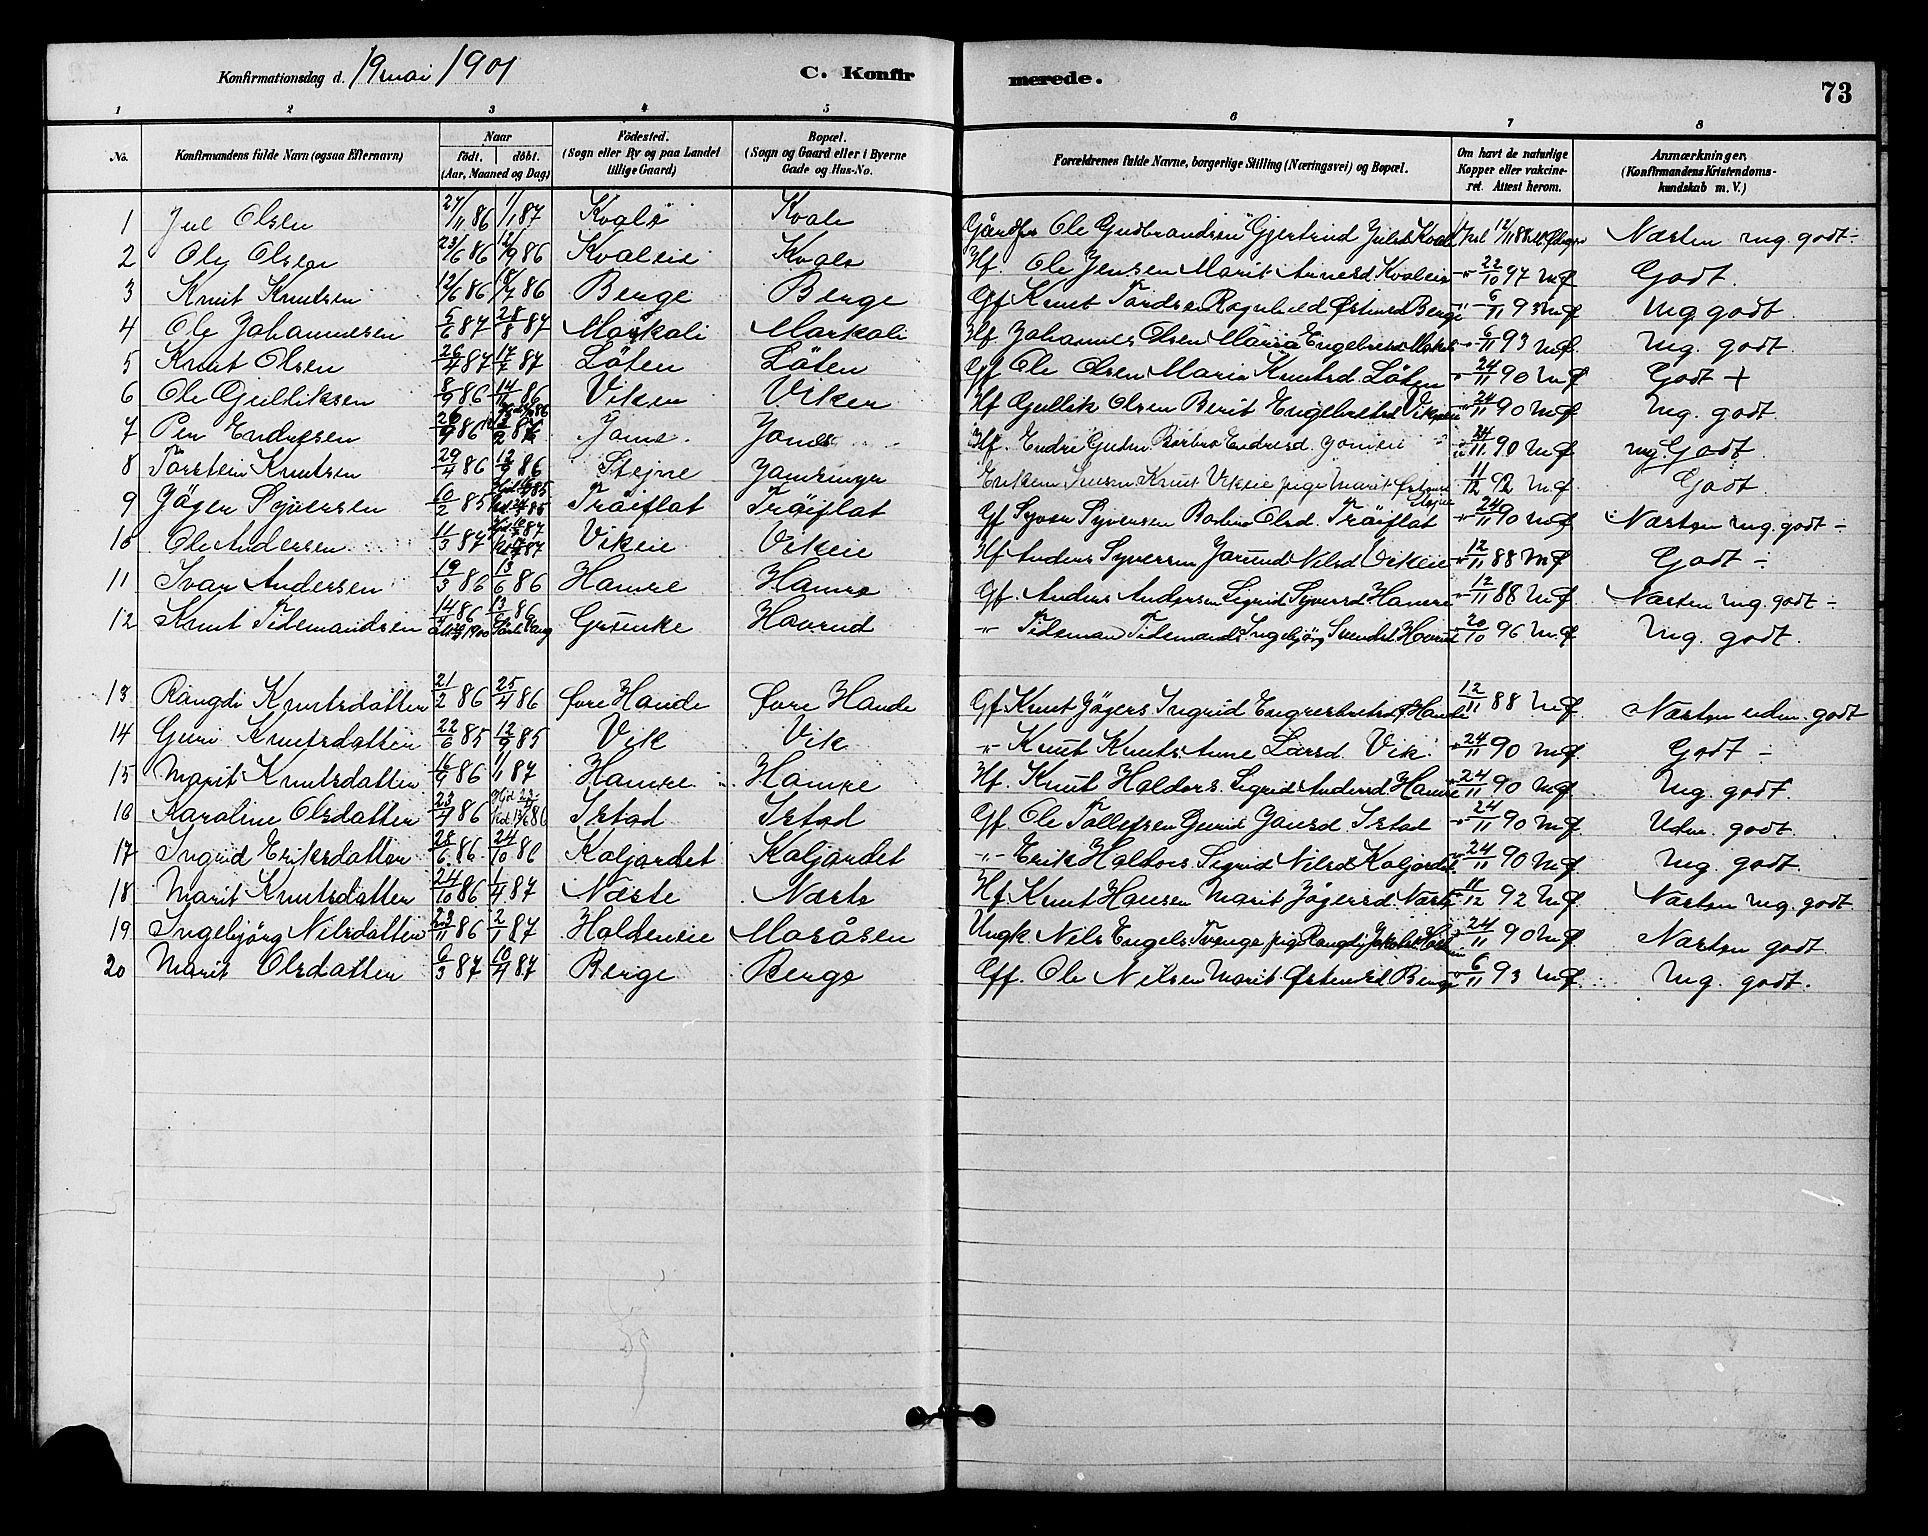 Konfirmationsdag d. 19 mai 1901 C. Konfirmerede. 73
1 2 3 4 5 6 7 8
No. Konfirmandens fulde Navn (ogsaa Efternavn) Naar födt. döbt. (Aar, Maaned og Dag) Födested. (Sogn eller By og paa Landet tillige Gaard) Bopæl. (Sogn og Gaard eller i Byerne Gade og Hus-No. Forældrenes fulde Navne, borgerlige Stilling (Næringsvei) og Bopæl. Om havt de naturlige Kopper eller vakcineret. Attest herom. Anmærkninger. (Konfirmandens Kristendomskundskab m. V.)
1 Jul Olsen 27/11 86 1/1 87 Kvale Kvale Gårdfr Ole Gudbrandsen Gjertrud Julsd Kvale 12/11 88 Næsten mg. godt ÷
2 Ole Olsen 23/6 86 12/9 86 Kvaleie Kvale Hf. Ole Jensen Marit Arnesd Kvaleie 22/10 97 m Ø Godt.
3 Knut Knutsen 12/6 86 18/7 86 Berge Berge Gf Knut Tordsen Ragnhild Østensd Berge 6/11 93 m Ø Mg godt
4 Ole Johannesen 5/6 87 28/8 87 Markali Markali Hf Johannes Olsen Maria Engebretsd 6/11 93 m Ø Mg. godt
5 Knut Olsen 26/4 87 17/7 87 Löten Löten Gf Ole Olsen Maria Knutsd Löten 24/11 90 m Ø Godt +
6 Ole Gulliksen 8/9 86 14/11 86 Viken Viken Hf Gullik Olsen Berit Engebretsd Viken 24/11 90 m Ø Mg. godt
7 Per Endresen 26/9 86 Jome Jome Hf. Endre Gudm. Barbro Endresd Jomeie 24/11 90 m Ø mg. Godt
8 Torstein Knutsen 29/4 86 12/9 86 Stejne Enkem Knut Vikeie pige Marit Østensd Stejne 11/12 92 m Ø Godt
9 Jöger Syversen 6/2 85 Tröiflat Tröiflat Gf Syver Syversen Barbro Olsd. Tröiflat 24/11 90 m Ø Næsten mg. godt ÷
10 Ole Andersen 11/3 87 Vikeie Vikeie Hf Anders Syversen Jorund Nilsd Vikeie 12/11 88 m Ø Godt ÷
11 Ivar Andersen 19/3 86 13/6 86 Hamre Hamre Gf. Anders Andersen Sigrid Syversd Hamre 12/11 88 m Ø Næsten mg. godt ÷
12 Knut Tidemandsen 14/4 86 13/6 86 Havrud " Tideman Tidemands. Ingebjörg Svendsd Havrud 20/10 96 m Ø Mg. godt.
13 Rangdi Knutsdatter 21/2 86 25/4 86 Øvre Hande Øvre Hande Gf. Knut Jögers Ingrid Engebretsd Ø Hande 12/11 88 m Ø Næsten udm. godt
14 Guri Knutsdatter 22/6 85 12/9 85 Vik Vik " Knut Knuts. Anne Larsd. Vik 24/11 90 m Ø Godt ÷
15 Marit Knutsdatter 16/9 86 1/1 87 Hamre Hamre Hf. Knut Haldors. Sigrid Andersd Hamre 24/11 90 m Ø Mg. godt.
16 Karoline Olsdatter 23/4 86 Istad Istad Gf. Ole Tollefsen Gunild Jansd Istad 24/11 90 m Ø Udm. godt.
17 Ingrid Eriksdatter 28/6 86 24/10 86 Koljordet Koljordet " Erik Haldors Sigrid Nilsd Koljordet 24/11 90 m Ø Mg. godt
18 Marit Knutsdatter 24/10 86 1/4 87 Næste Næste Hf. Knut Hansen Marit Jögersd Næste 11/12 92 m Ø Næsten mg. godt
19 Ingebjörg Nilsdatter 23/11 86 2/1 87 Holdeneie Moråsen Ungk. Nils Engels Tvenge pig. Rangdi 24/11 90 m Ø Næsten godt
20 Marit Olsdatter 6/3 87 10/4 87 Berge Berge Gff. Ole Nilsen Marit Østensd Berge 6/11 93 m Ø Mg. godt.